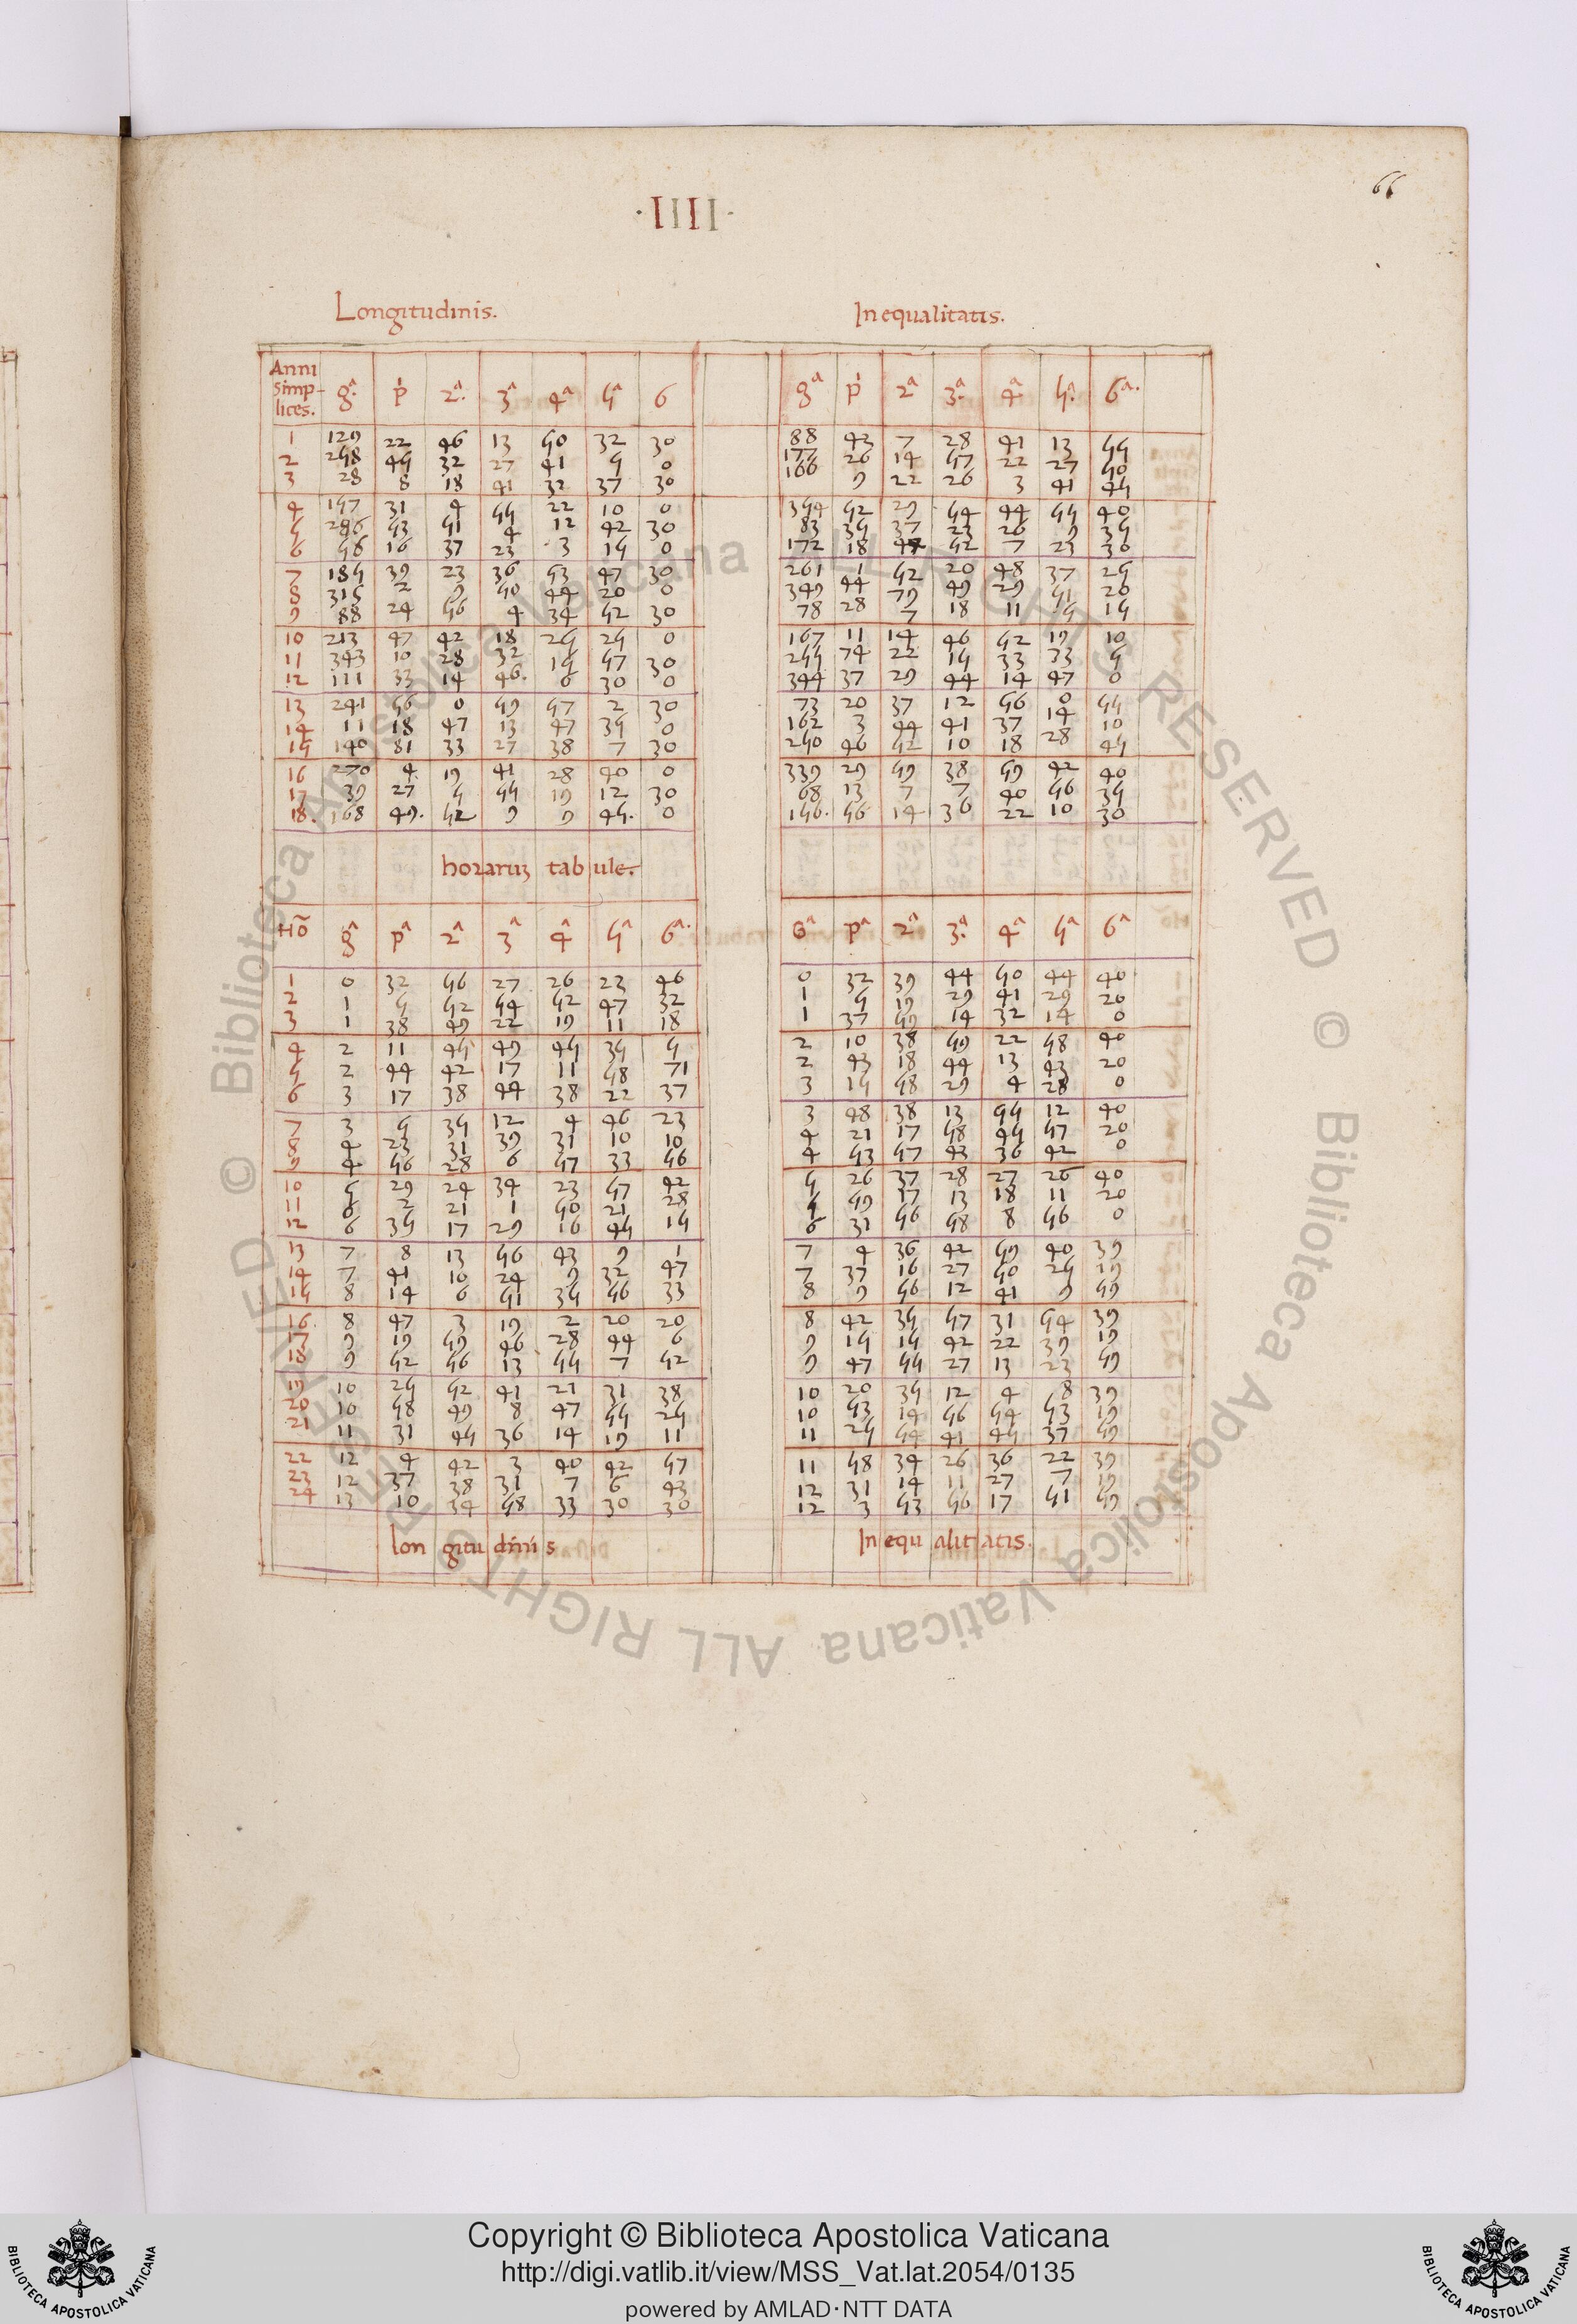 66
·IIII·
Longitudinis. Inequalitatis.
Anni simp-lices. gᵃ. ṗ 2ᵃ. 3ᵃ 4ᵃ 5ᵃ 6 gᵃ ṗ 2ᵃ 3ᵃ. 4ᵃ 5ᵃ. 6ᵃ.
1 129 22 46 13 50 32 30 88 43 7 28 41 13 55
2 258 45 32 27 41 5 0 177 26 14 57 22 27 50
3 28 8 18 41 32 37 30 166 9 22 26 3 41 45
4 157 31 4 55 22 10 0 354 52 29 54 44 55 40
5 286 53 51 4 12 42 30 83 35 37 23 26 9 35
6 56 16 37 23 3 15 0 172 18 52 7 23 30
7 185 39 23 36 53 47 30 261 1 52 20 48 37 25
8 315 2 9 50 44 20 0 349 44 79 49 29 51 20
9 88 24 56 4 34 52 30 78 28 7 18 11 5 15
10 213 47 42 18 25 25 0 167 11 14 46 52 19 10
11 343 10 28 32 15 57 30 255 74 22 15 33 33 5
12 111 33 14 46. 6 30 0 344 37 29 44 14 47 0
13 241 56 0 59 57 2 30 73 20 37 12 56 0 55
14 11 18 47 13 47 35 0 162 3 44 41 37 14 10
15 140 81 33 27 38 7 30 250 46 52 10 18 28 45
16 270 4 19 41 28 40 0 339 29 59 38 59 42 40
17 39 27 5 55 19 12 30 68 13 7 7 40 56 35
18. 168 49. 52 9 9 45. 0 156. 56 14 36 22 10 30
horaruʒ tabule.
Hõ gᵃ pᵃ 2ᵃ 3ᵃ 4ᵃ 5ᵃ 6ᵃ. Gᵃ pᵃ 2ᵃ 3ᵃ. 4ᵃ 5ᵃ 6ᵃ
1 0 32 56 27 26 23 46 0 32 39 44 50 44 40
2 1 5 52 54 52 47 32 1 5 19 29 41 29 20
3 1 38 49 22 19 11 18 1 37 59 14 32 14 0
4 2 11 45 49 45 35 5 2 10 38 59 22 58 40
5 2 44 42 17 11 58 71 2 43 18 44 13 43 20
6 3 17 38 44 38 22 37 3 15 58 29 4 28 0
7 3 5 35 12 4 46 23 3 48 38 13 55 12 40
8 4 23 31 39 31 10 10 4 21 17 58 45 57 20
9 4 56 28 6 57 33 56 4 53 57 43 36 42 0
10 5 29 24 34 23 57 42 5 26 37 28 27 26 40
11 6 2 21 1 50 21 28 5 59 17 13 18 11 20
12 6 35 17 29 16 45 15 6 31 56 58 8 56 0
13 7 8 13 56 43 9 1 7 4 36 42 59 40 39
14 7 41 10 24 9 32 47 7 37 16 27 50 25 19
15 8 14 6 51 35 56 33 8 9 56 12 41 9 59
16. 8 47 3 19 2 20 20 8 42 35 57 31 54 39
17 9 19 59 46 28 44 6 9 15 15 42 22 39 19
18 9 52 56 13 55 7 52 9 47 55 27 13 23 59
19 10 25 52 41 21 31 38 10 20 35 12 4 8 39
20 10 58 49 8 47 55 25 10 53 14 56 54 53 19
21 11 31 45 36 14 19 11 11 25 54 41 45 37 59
22 12 4 42 3 40 42 57 11 58 34 26 36 22 39
23 12 37 38 31 7 6 43 12 31 14 11 27 7 19
24 13 10 34 58 33 30 30 12 3 53 56 17 51 59
longitudinis Inequalitatis.
© Biblioteca Apostolica Vaticana ALL RIGHTS RESERVED © Biblioteca Apostolica Vaticana ALL RIGHTS RESERVED
BIBLIOTECA APOSTOLICA VATICANA
Copyright © Biblioteca Apostolica Vaticana
http://digi.vatlib.it/view/MSS_Vat.lat.2054/0135
powered by AMLAD·NTT DATA
BIBLIOTECA APOSTOLICA VATICANA